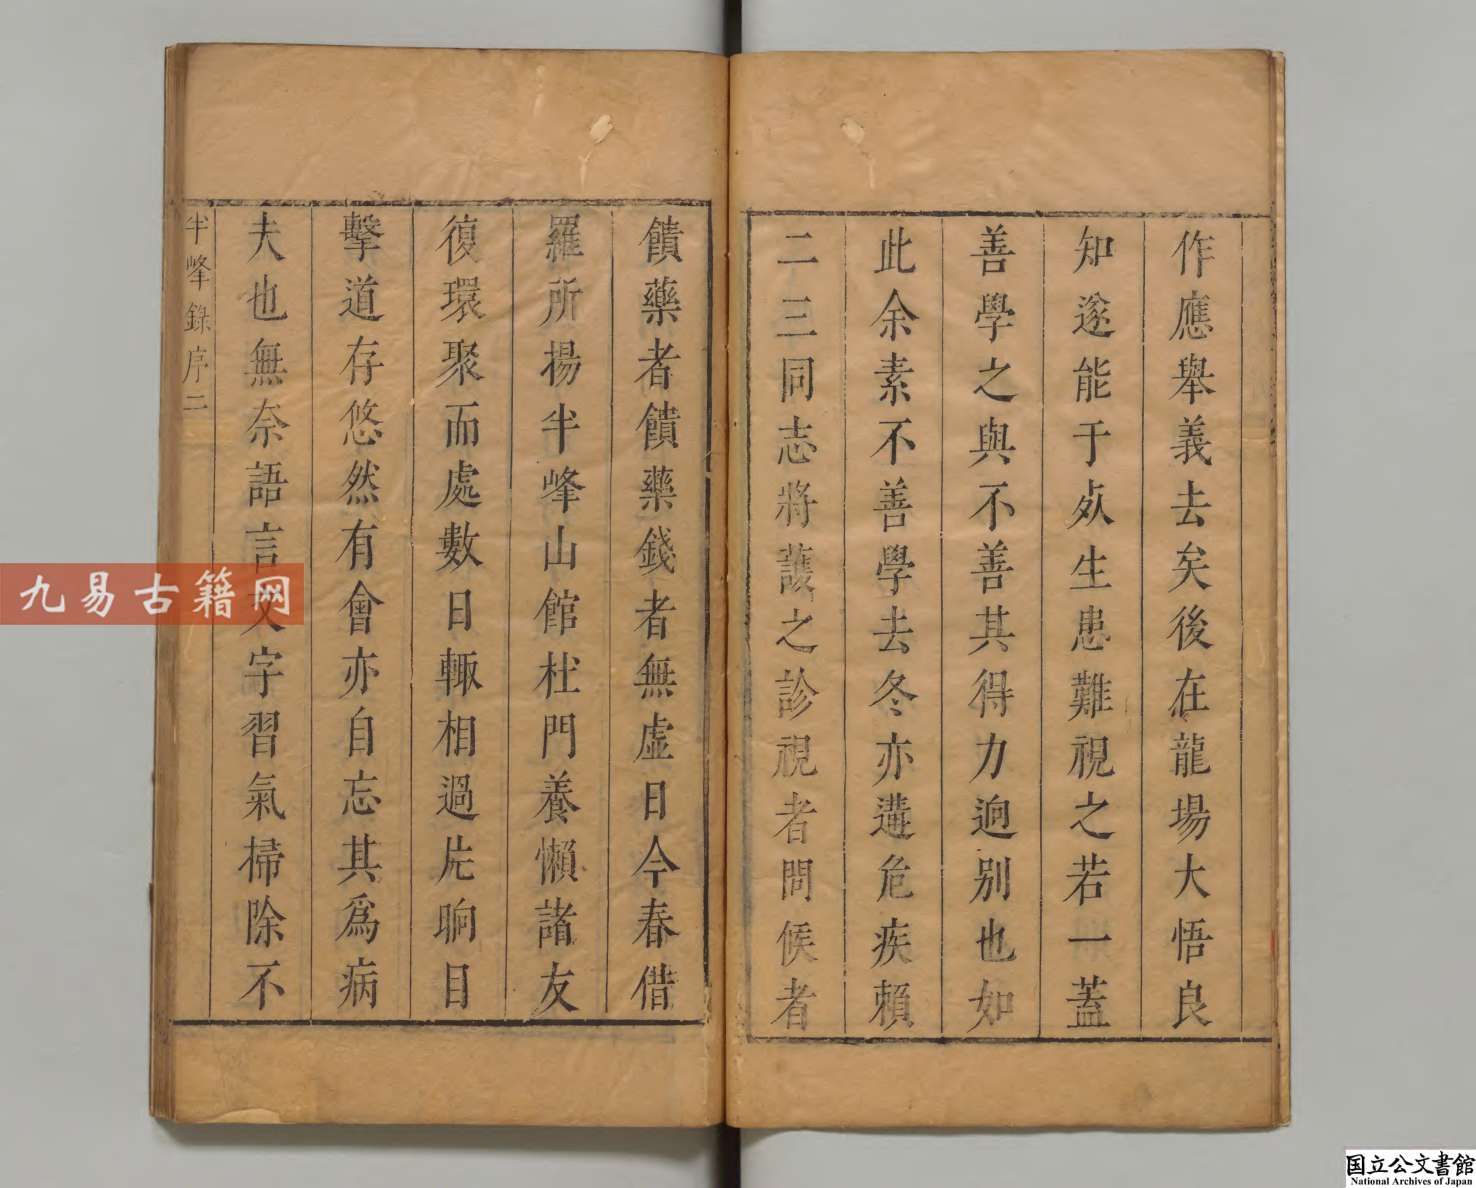 作應舉義去矣後在龍場大悟良
知遂能于死生患難視之若一蓋
善學之與不善其得力逈别也如
此余素不善學去冬亦遘危疾賴
二三同志將護之診視者問候者
饋藥者饋藥錢者無虛日今春借
羅所揚半峰山館杜門養懶諸友
復環聚而處數日輙相過片晌目
擊道存悠然有會亦自忘其爲病
夫也無奈語言文字習氣掃除不
半峰錄序二
九易古籍网
国立公文書館
National Archives of Japan